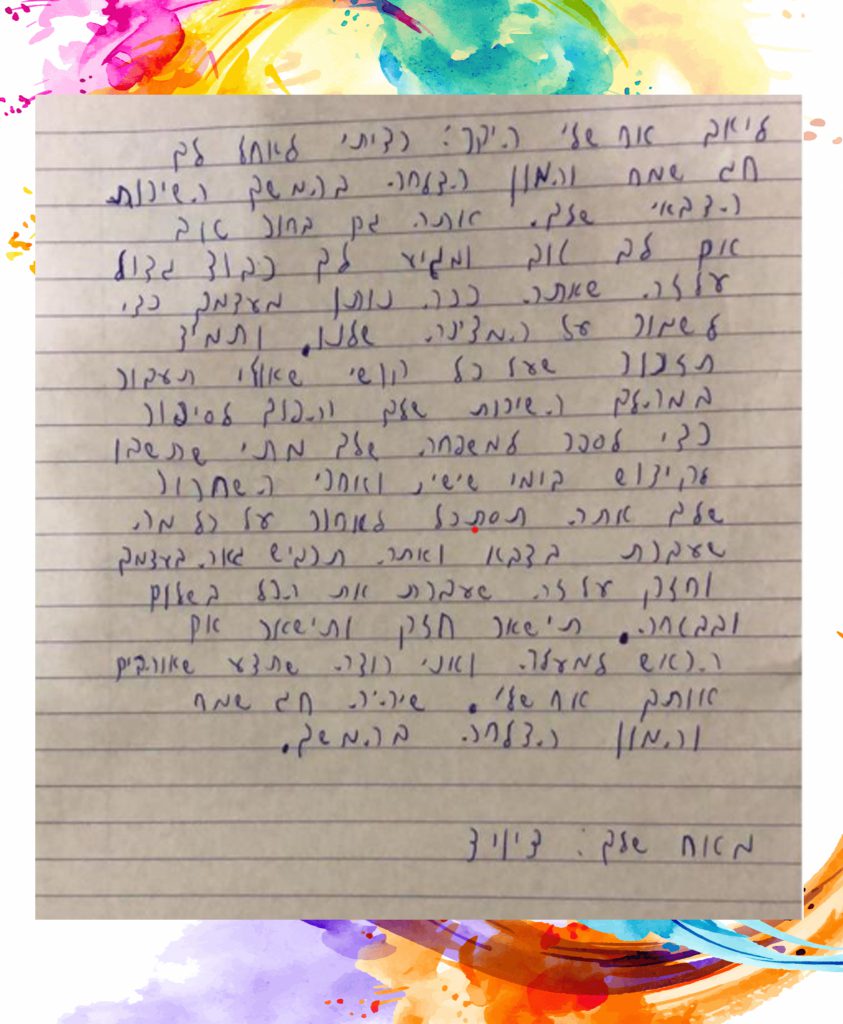 ליאב אח שלי היקר: רציתי לאחל לך
חג שמח והמון הצלחה בהמשך השירות
הצבאי שלך. אתה גם בחור טוב
אם לב טוב ומגיע לך כבוד גדול
על זה שאתה ככה נותן מעצמך כדי
לשמור על המדינה שלנו. ותמיד
תזכור שעל כל קושי שאולי תעבור
במהלך השירות שלך והפוך לסיפור
כדי לספר למשפחה שלך מתי שתשבו
לקידוש בומי שישי, ואחרי השחרור
שלך אתה תסתכל לאחור על כל מה
שעברת בצבא ואתה תרגיש גאה בעצמך
וחזק על זה שעברת את הכל בשלום
ובבטחה. תישאר חזק ותישאר אם
הראש למעלה ואני רוצה שתדע שאוהבים
אותך אח שלי. שיהיה חג שמח
והמון הצלחה בהמשך.
מאח שלך: דיויד